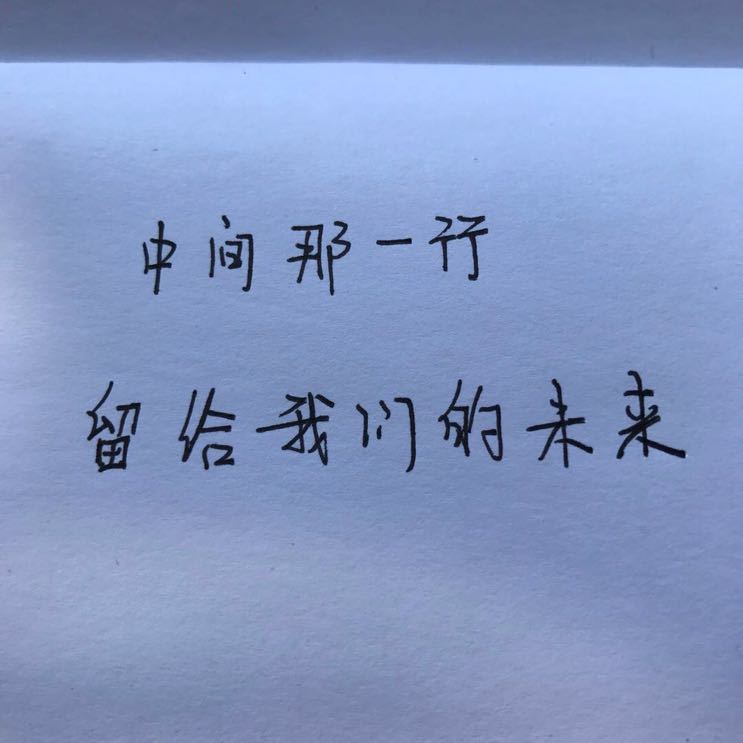 中间那一行
留给我们的未来